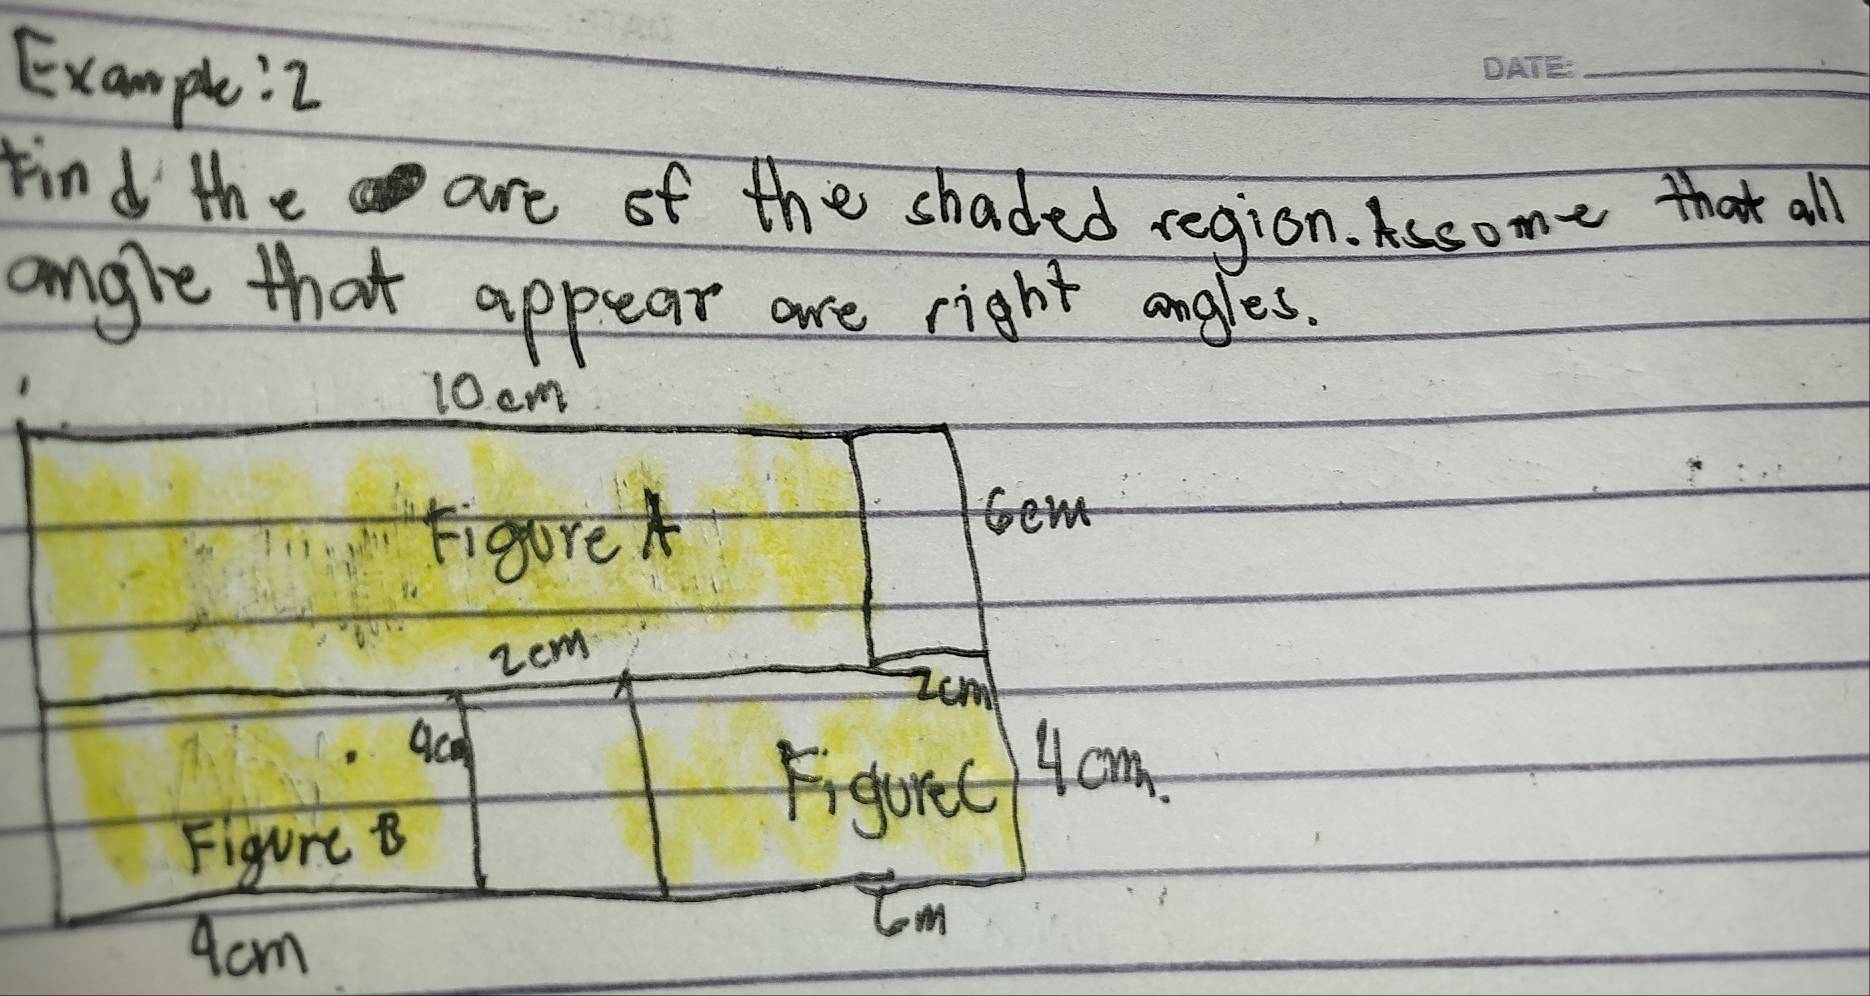 DATE:
Example: 2
Find the are of the shaded region. Assome that all
angle that appear are right angles.
10 cm
Figure A
6cm
2cm
2cm
4cm
Figure B
Figure C
4cm.
4cm